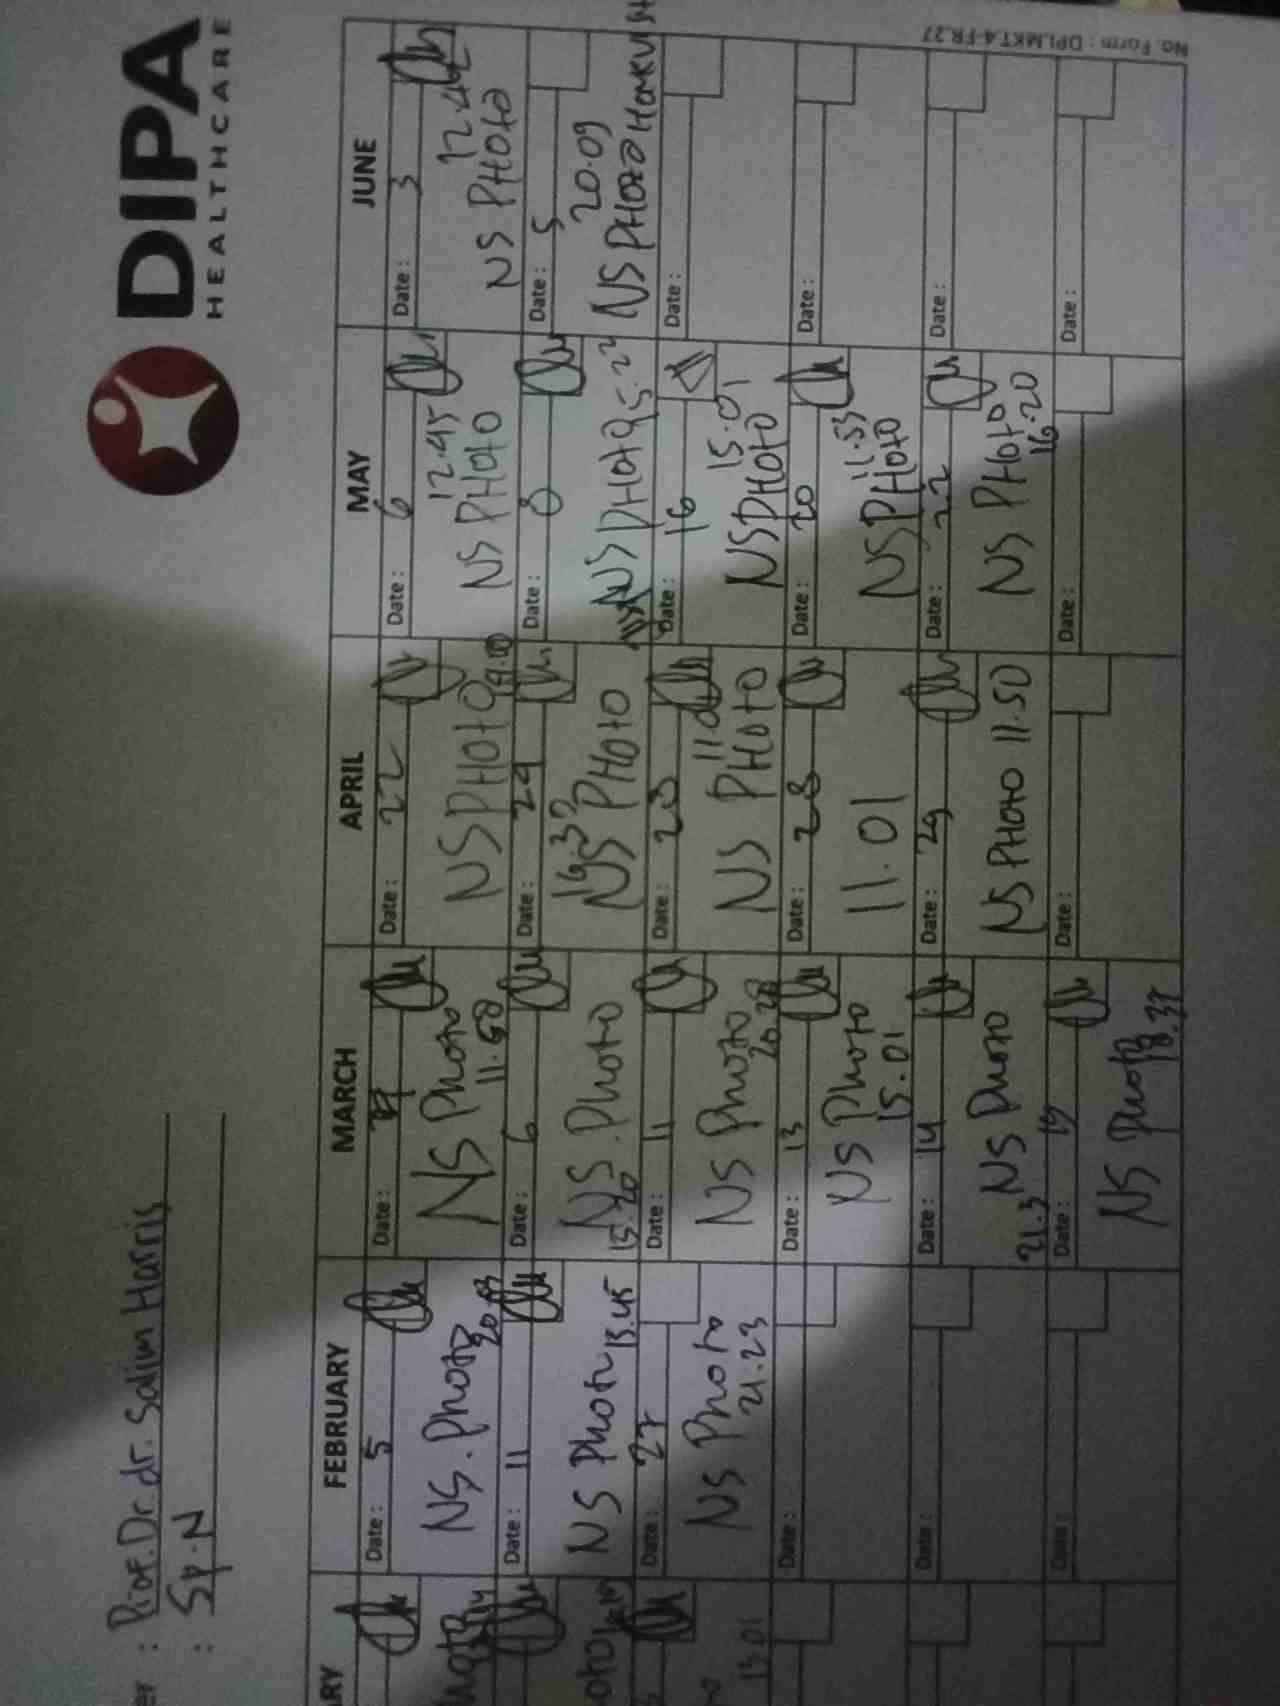 DIPA
HEALTHCARE
er : Prof. Dr. dr. Salim Harris
: Sp.N
RY
FEBRUARY
MARCH
APRIL
MAY
JUNE
Date : 5
Date :
Date : 22
Date : 6
Date : 3
NS. Photo
NS Photo
11.58
NS PHOTO
12.45
NS PHOTO
12.42
NS PHOTO
Date : 11
Date : 6
Date : 24
Date : 8
Date : 5
NS Photo 13.45
NS. Photo
13.20
NS PHOTO
NS PHOTO
20.09
NS PHOTO
Date : 27
Date : 11
Date : 28
Date : 16
Date :
13 01
NS Photo
21.23
NS Photo
20.28
NS PHOTO
15.01
NS PHOTO
Date :
Date : 13
Date : 28
Date : 20
Date :
NS Photo
15.01
11.01
11.53
NS PHOTO
Date :
Date : 14
Date : 29
Date : 22
Date :
NS Photo
21.3
NS PHOTO 11.50
NS PHOTO
16.20
Date :
Date : 19
Date :
Date :
Date :
NS Photo
18.37
No. Form : DPI.MKT.4-FR.27